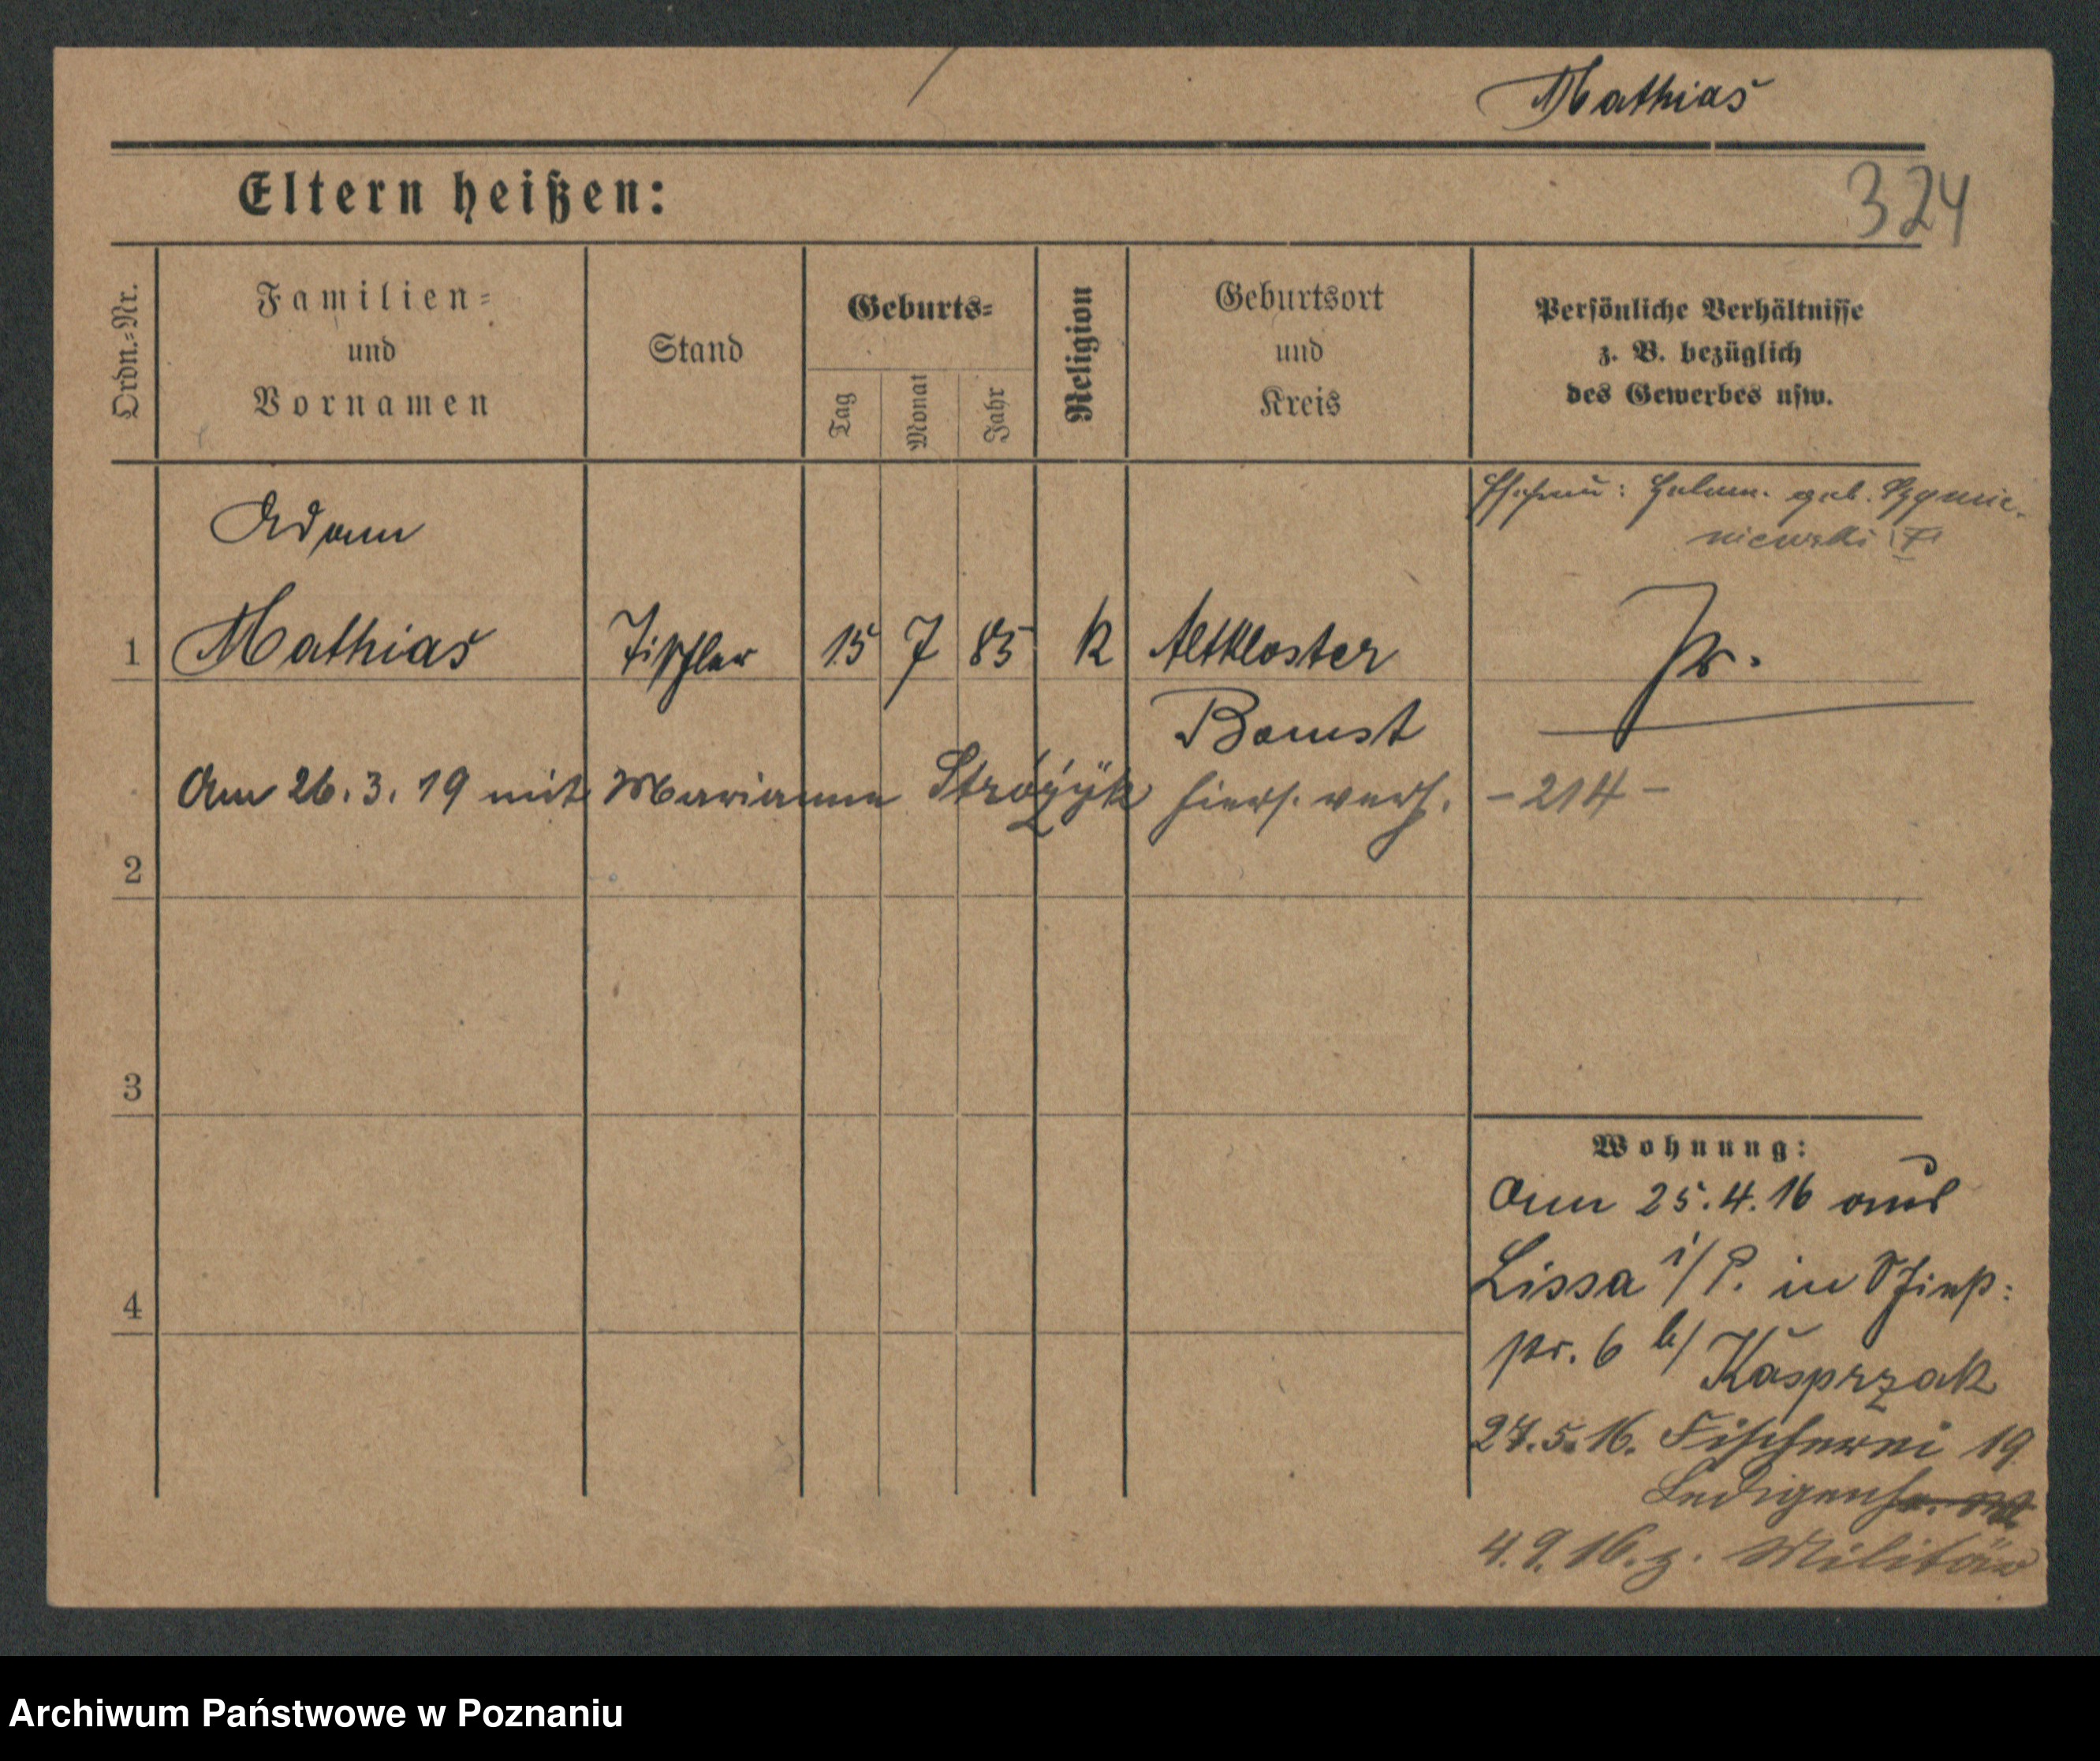 Mathias
Eltern heißen:
324
Ordn.=Nr.
Familien=
und
Vornamen
Stand
Geburts=
Tag
Monat
Jahr
Religion
Geburtsort
und
Kreis
Persönliche Verhältnisse
z. B. bezüglich
des Gewerbes usw.
Ehefrau: geb.
niewski
Adam
1 Mathias Tischler 15 7 85 K Altkloster Pr.
Bomst
Am 26.3.19 mit Marianna Stróżyk hiers. verh. -214-
2
3
4
Wohnung:
Am 25.4.16 aus
Lissa i/P. in
6 b/ Kasprzak
27.5.16. Fischerei 19
4.9.16. z. Militär
Archiwum Państwowe w Poznaniu